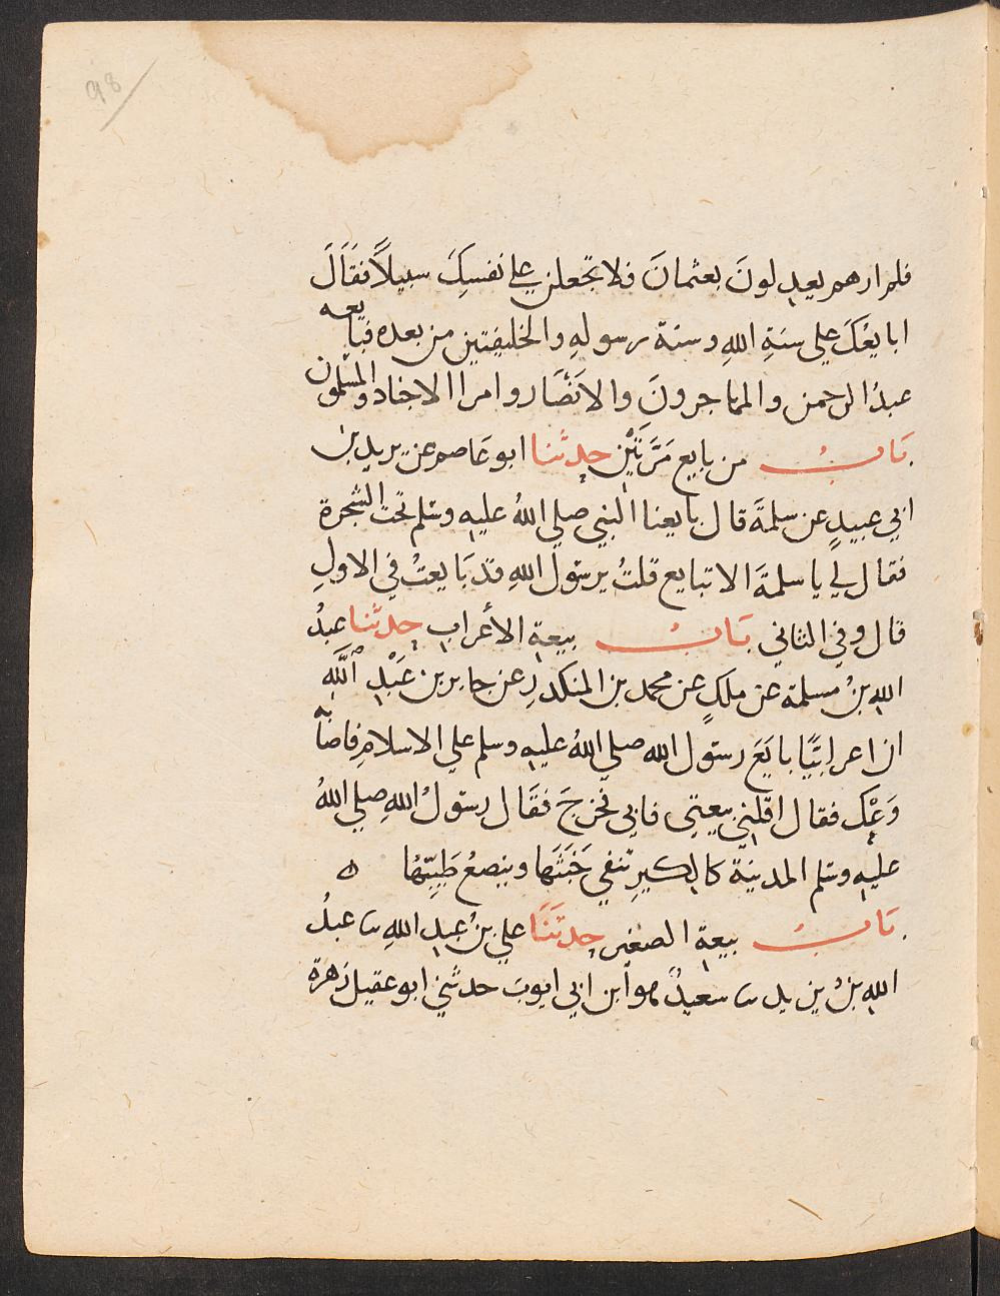 98
فلم ارهم يعدلونَ بعثمانَ فلا تجعلن علي نفسِكَ سبيلاً فقَالَ
ابايعُكَ علي سنةِ اللهِ وسنة رسولهِ والخليفتين من بعده فبايعه
عبدُ الرحمن والمهاجرونَ والانصَار وامرا الاجناد والمسْلمون
بَابُ من بايع مَرَّتَيْن حدثنا ابو عَاصم عن يزيد بن
ابي عبيدٍ عن سلمةَ قال بايعنا النبي صلي اللهُ عليه وسلم تحت الشجرة
فقال لي يا سلمةَ الا تبايع قلتُ يرسول اللهِ قد بَايعتُ في الاولِ
قال وفي الثاني بَابُ بيعة الأعراب حدثنا عبدُ
اللهِ بنُ مسلمة عن ملكٍ عن محمد بن المنكدرِ عن جابر بن عَبْدِ اللَّهِ
ان اعرابيًّا بايَعَ رسول الله صلي اللهُ عليه وسلم علي الاسلامِ فاصابه
وَعْك فقال اقلني بيعتي فابي فخرجَ فقَال رسولُ اللهِ صلي اللهُ
عليه وسلم المدينة كالكيرِ تنفي خَبَثَها وينصعُ طَيِبّهُا ه
بَابُ بيعة الصغير حدثَنَا علي بنُ عبد اللهِ نا عبدُ
اللهِ بنُ يزيد نا سعيدٌ هو ابن ابي ايوبَ حدثني ابو عقيل زهرة